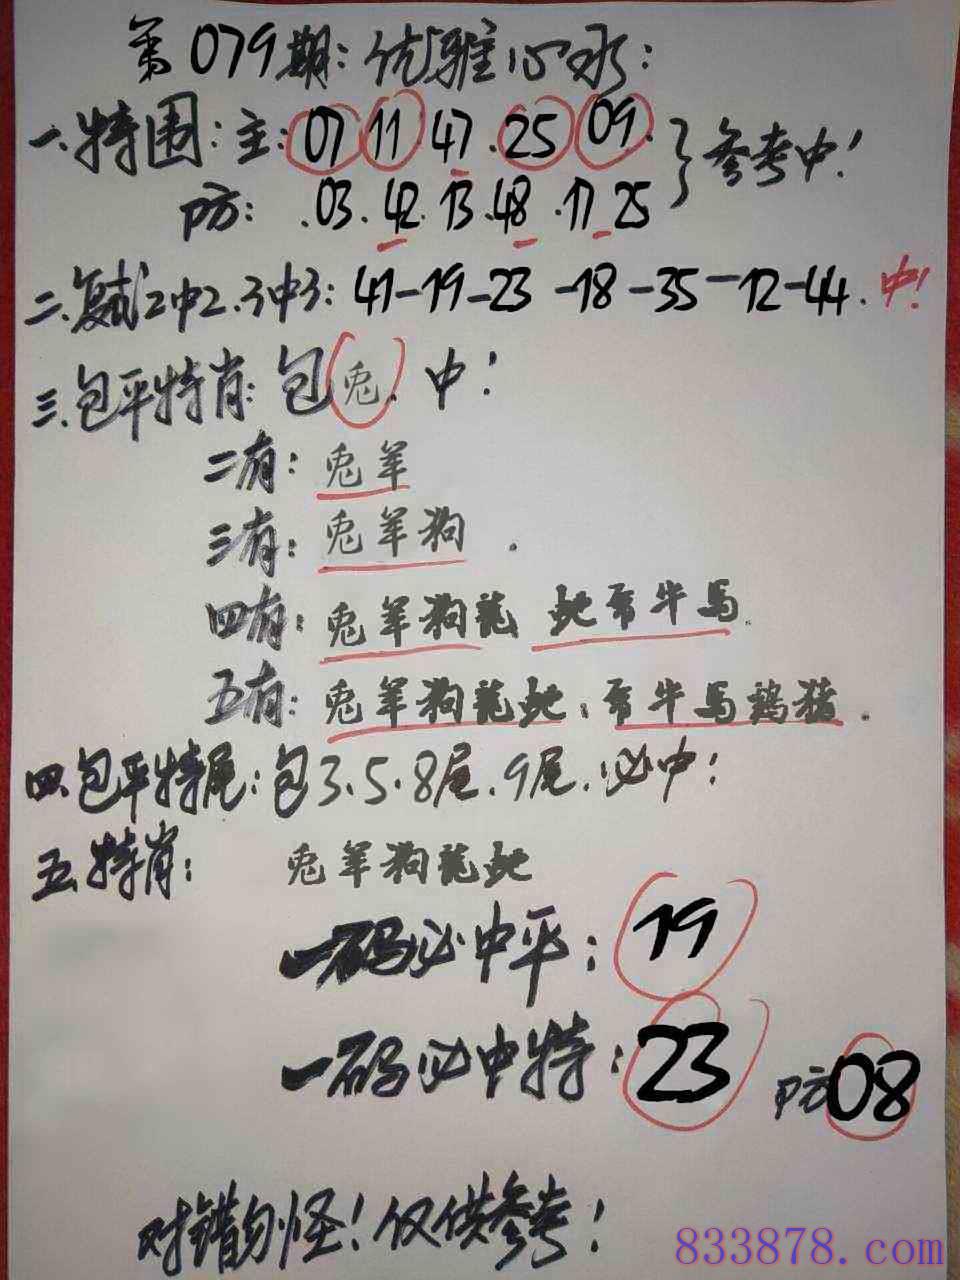 第079期:优雅心水:
一.特围:主:07 11.47.25 09. }参考中!
防: .03.42.13.48.17 25
二.复试2中2.3中3:41-19-23-18-35-12-44.中!
三.包平特肖:包兔.中!
二有:兔羊
三有:兔羊狗.
四有:兔羊狗龍 蛇 牛马.
五有:兔羊狗龍蛇: 牛马鷄猪.
四.包平特尾:包3.5.8尾.9尾.必中!
五.特肖: 兔羊狗龍蛇
一码必中平:19
一码必中特:23 防08
对错勿怪!仅供参考!
833878.com